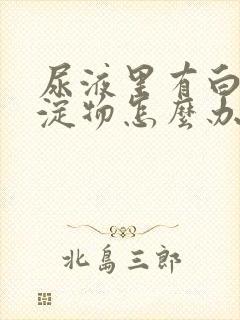 尿液里有白
淀物怎麼办
北島三郎